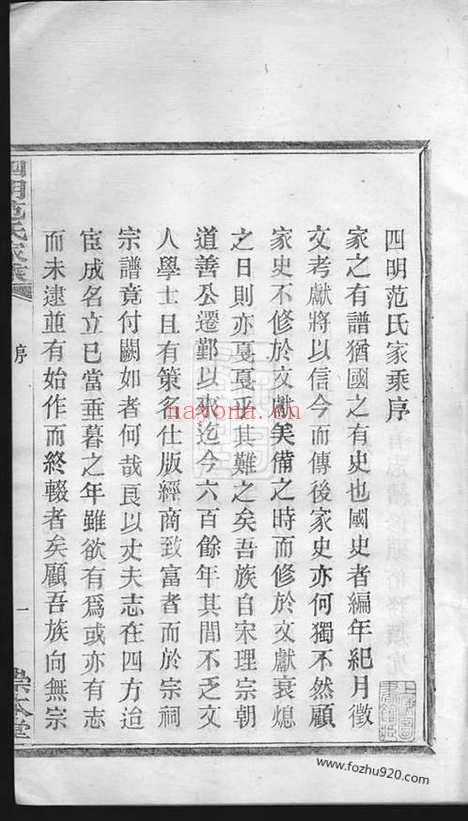 四明范氏家乘序
家之有譜猶國之有史也國史者編年紀月徵
文考獻將以信今而傳後家史亦何獨不然顧
家史不修於文獻美備之時而修於文獻衰熄
之日則亦戞戞乎其難之矣吾族自宋理宗朝
道善公遷鄞以來迄今六百餘年其間不乏文
人學士且有策名仕版經商致富者而於宗祠
宗譜竟付闕如者何哉良以丈夫志在四方迨
宦成名立已當垂暮之年雖欲有爲或亦有志
而未逮並有始作而終輟者矣顧吾族向無宗
四明范氏家乘
序
一
nayona.cn
www.fozhu920.com